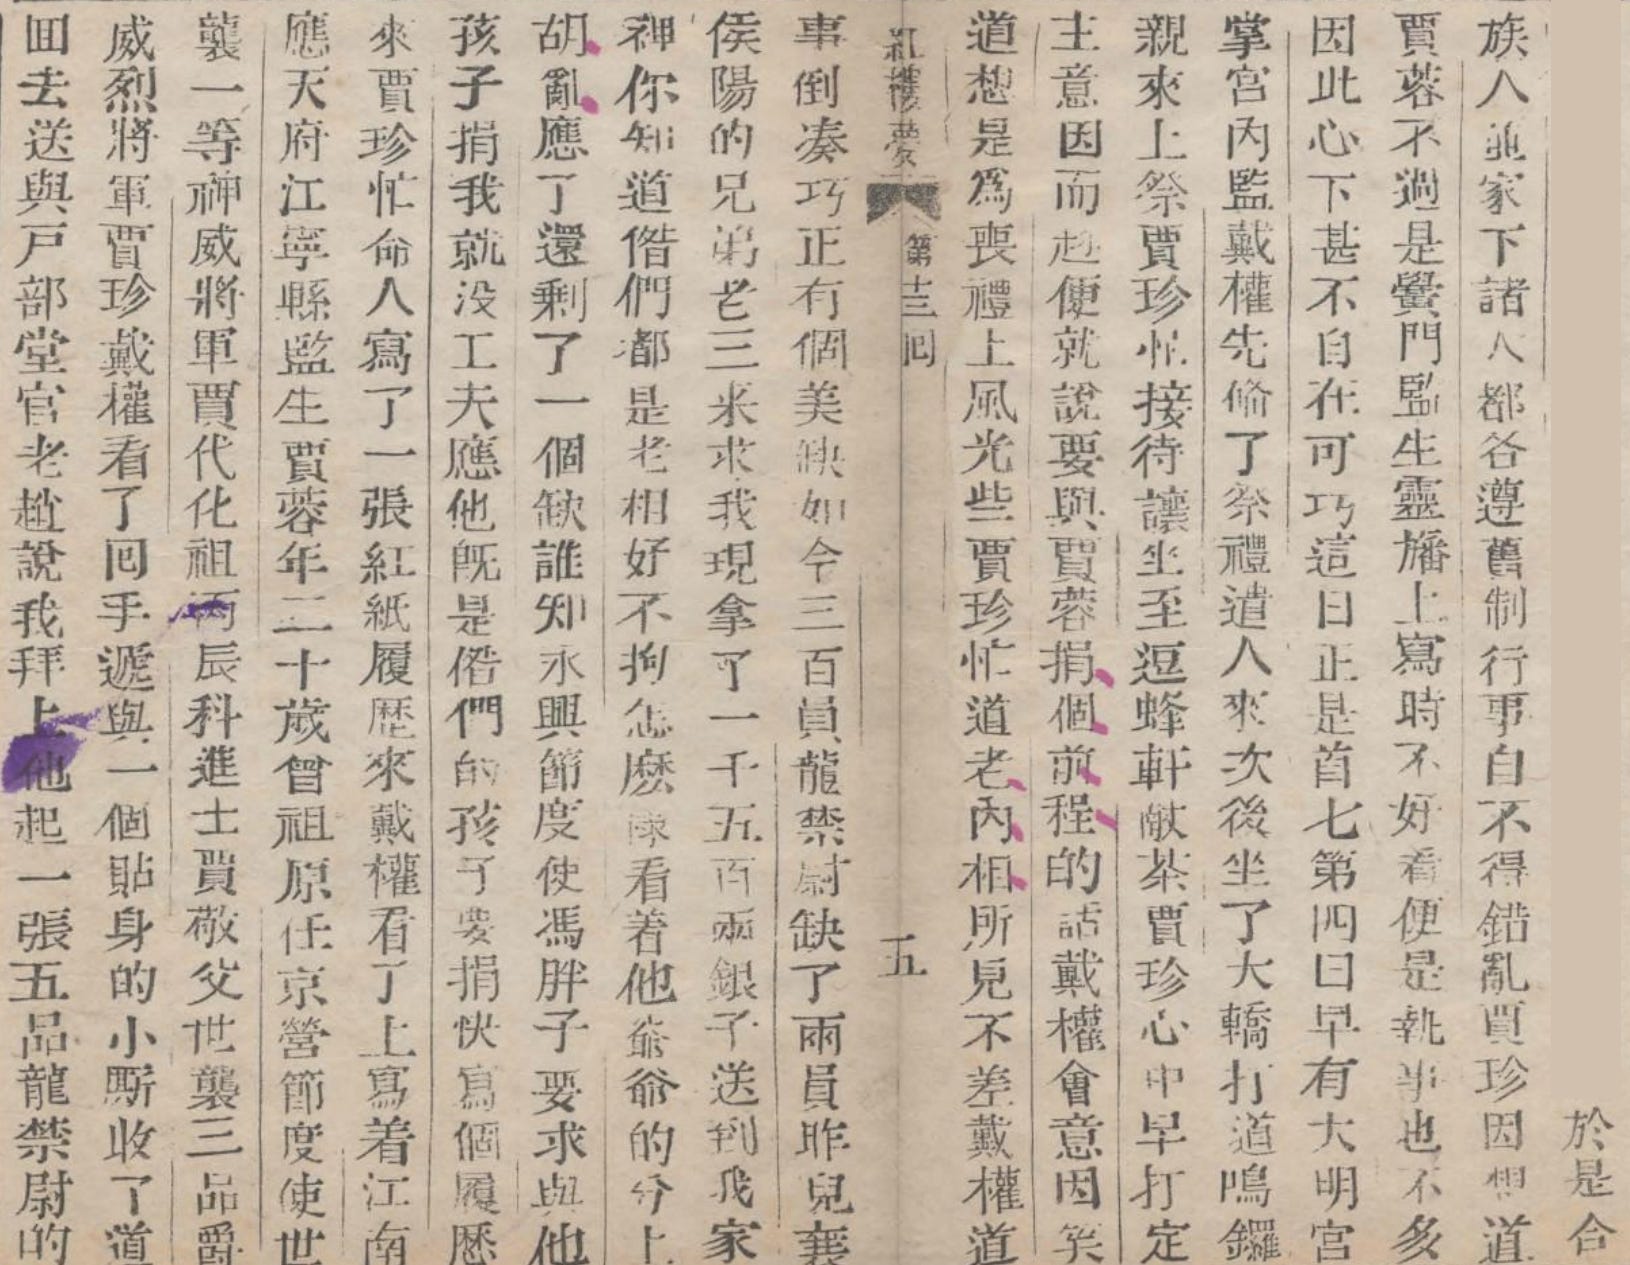 於是合
族人並家下諸人都各遵舊制行事自不得錯亂賈珍因想道
賈蓉不過是黌門監生靈旛上寫時不好看便是執事也不多
因此心下甚不自在可巧這日正是首七第四日早有大明宮
掌宮內監戴權先偹了祭禮遣人來次後坐了大轎打道鳴鑼
親來上祭賈珍忙接待讓坐至逗蜂軒献茶賈珍心中早打定
主意因而趁便就說要與賈蓉捐個前程的話戴權會意因笑
道想是為喪禮上風光些賈珍忙道老內相所見不差戴權道
紅樓夢 第十三回 五
事倒凑巧正有個美缺如今三百員龍禁尉缺了兩員昨兒襄
侯陽的兄弟老三來求我現拿了一千五百兩銀子送到我家
神你知道偺們都是老相好不拘怎麽樣看着他爺爺的分上
胡亂應了還剩了一個缺誰知永興節度使馮胖子要求與他
孩子捐我就没工夫應他既是偺們的孩子要捐快寫個履歷
來賈珍忙命人寫了一張紅紙履歷來戴權看了上寫着江南
應天府江寧縣監生賈蓉年二十歲曾祖原任京營節度使世
襲一等神威將軍賈代化祖丙辰科進士賈敬父世襲三品爵
威烈將軍賈珍戴權看了回手遞與一個貼身的小厮收了道
回去送與戸部堂官老趙說我拜上他起一張五品龍禁尉的